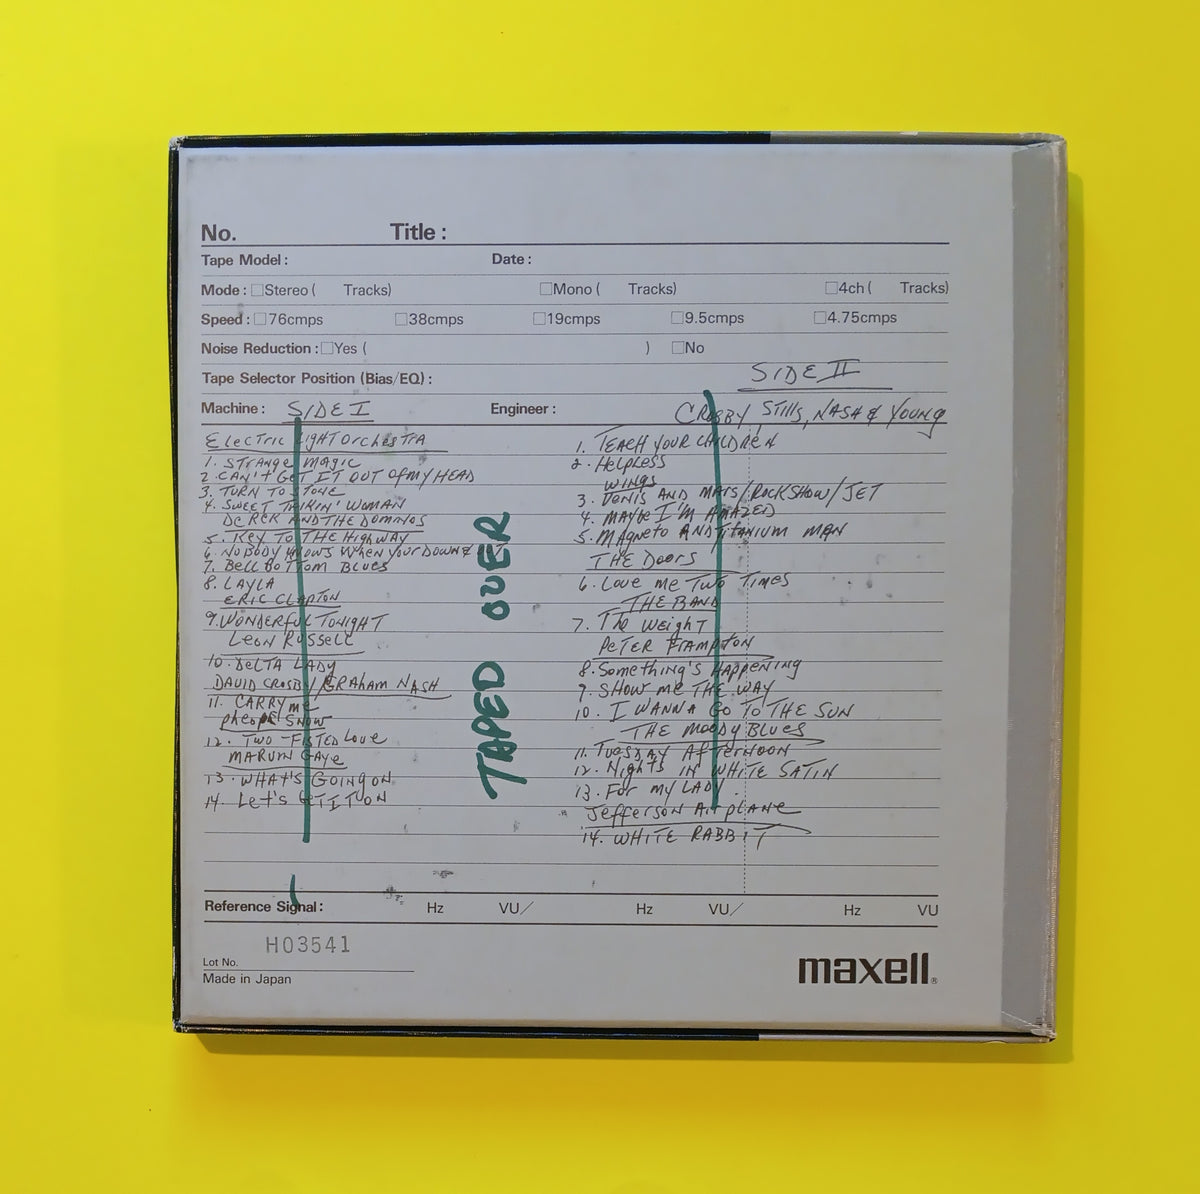 No. Title :
Tape Model : Date :
Mode : □Stereo ( Tracks) □Mono ( Tracks) □4ch ( Tracks)
Speed : □76cmps □38cmps □19cmps □9.5cmps □4.75cmps
Noise Reduction : □Yes ( ) □No
Tape Selector Position (Bias/EQ) :
Machine : Engineer :
SIDE I
Electric Light Orchestra
1. STRANGE MAGIC
2. CAN'T GET IT OUT OF MY HEAD
3. TURN TO STONE
4. SWEET TALKIN' WOMAN
DEREK AND THE DOMINOS
5. KEY TO THE HIGHWAY
6. NOBODY KNOWS WHEN YOUR DOWN & OUT
7. BELL BOTTOM BLUES
8. LAYLA
ERIC CLAPTON
9. WONDERFUL TONIGHT
LEON RUSSELL
10. DELTA LADY
DAVID CROSBY/GRAHAM NASH
11. CARRY ME
PHEOBE SNOW
12. TWO-FISTED LOVE
MARVIN GAYE
13. WHAT'S GOING ON
14. LET'S GET IT ON
TAPED OVER
SIDE II
CROSBY, STILLS, NASH & YOUNG
1. TEACH YOUR CHILDREN
2. HELPLESS
WINGS
3. VENIS AND MARS/ROCKSHOW/JET
4. MAYBE I'M AMAZED
5. MAGNETO AND TITANIUM MAN
THE DOORS
6. LOVE ME TWO TIMES
THE BAND
7. THE WEIGHT
PETER FRAMPTON
8. SOMETHING'S HAPPENING
9. SHOW ME THE WAY
10. I WANNA GO TO THE SUN
THE MOODY BLUES
11. TUESDAY AFTERNOON
12. NIGHTS IN WHITE SATIN
13. FOR MY LADY
JEFFERSON AIRPLANE
14. WHITE RABBIT
Reference Signal : Hz VU/ Hz VU/ Hz VU
H03541
Lot No.
Made in Japan
maxell®